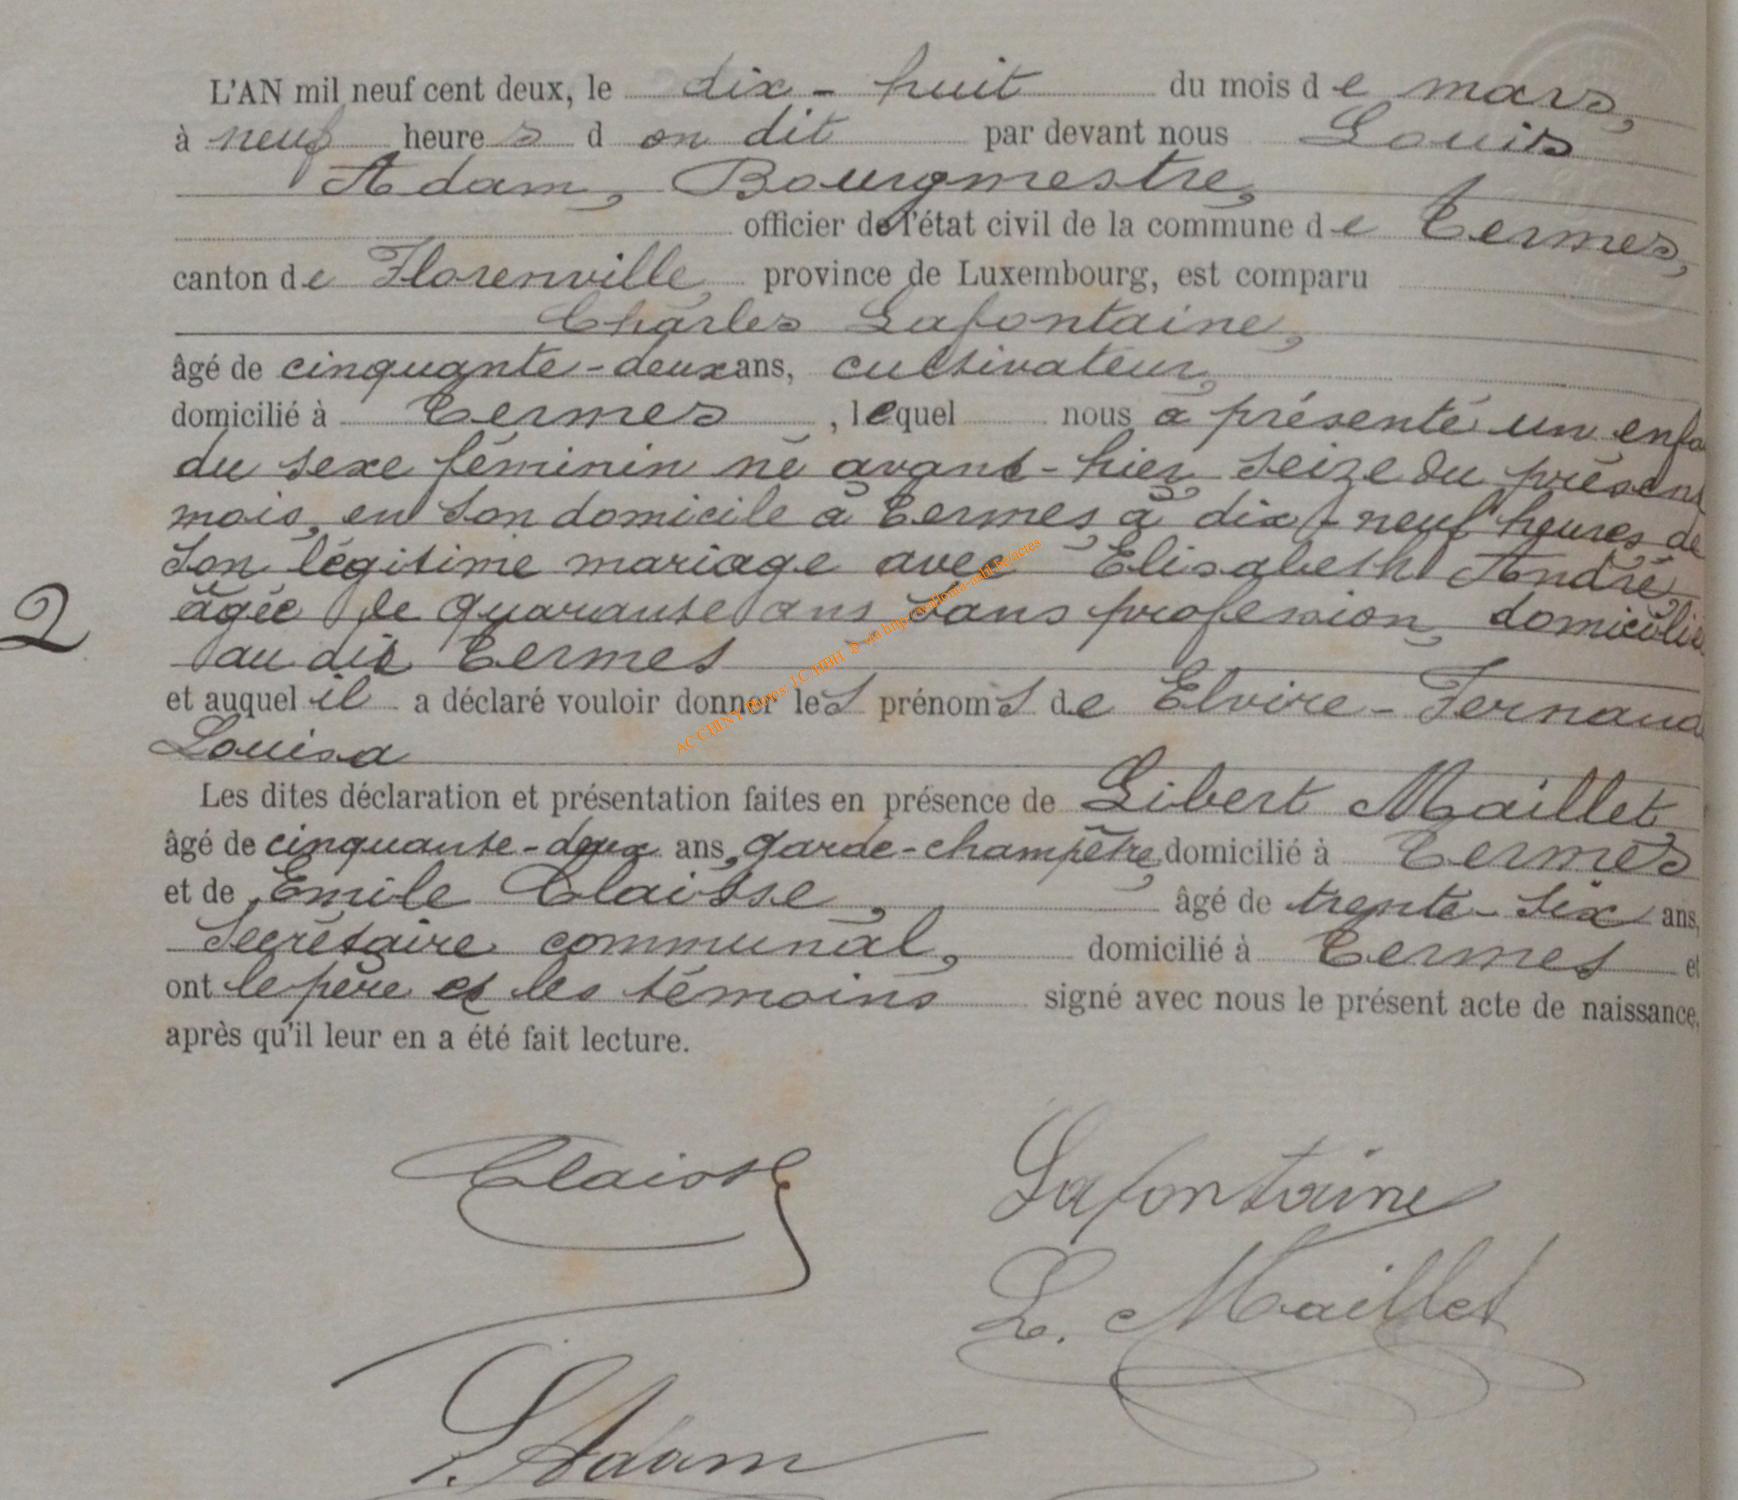 L'AN mil neuf cent deux, le dix-huit du mois de mars,
à neuf heures d on dit par devant nous Louis
Adam, Bourgmestre,
officier de l'état civil de la commune de Termes,
canton de Florenville, province de Luxembourg, est comparu
Charles Lafontaine,
âgé de cinquante-deux ans, cultivateur,
domicilié à Termes, lequel nous a présenté un enfa
du sexe féminin né avant-hier seize du présent
mois, en son domicile à Termes, à dix-neuf heures de
son légitime mariage avec Elisabeth André,
âgée de quarante ans sans profession, domicilié
au dit Termes
2
et auquel il a déclaré vouloir donner les prénoms de Elvire-Fernand
Louisa
Les dites déclaration et présentation faites en présence de Libert Maillet,
âgé de cinquante-deux ans, garde-champêtre, domicilié à Termes
et de Emile Claisse, âgé de trente-six ans,
Secrétaire communal, domicilié à Termes et
ont le père et les témoins signé avec nous le présent acte de naissance,
après qu'il leur en a été fait lecture.
Claisse
Lafontaine
L. Maillet
L. Adam